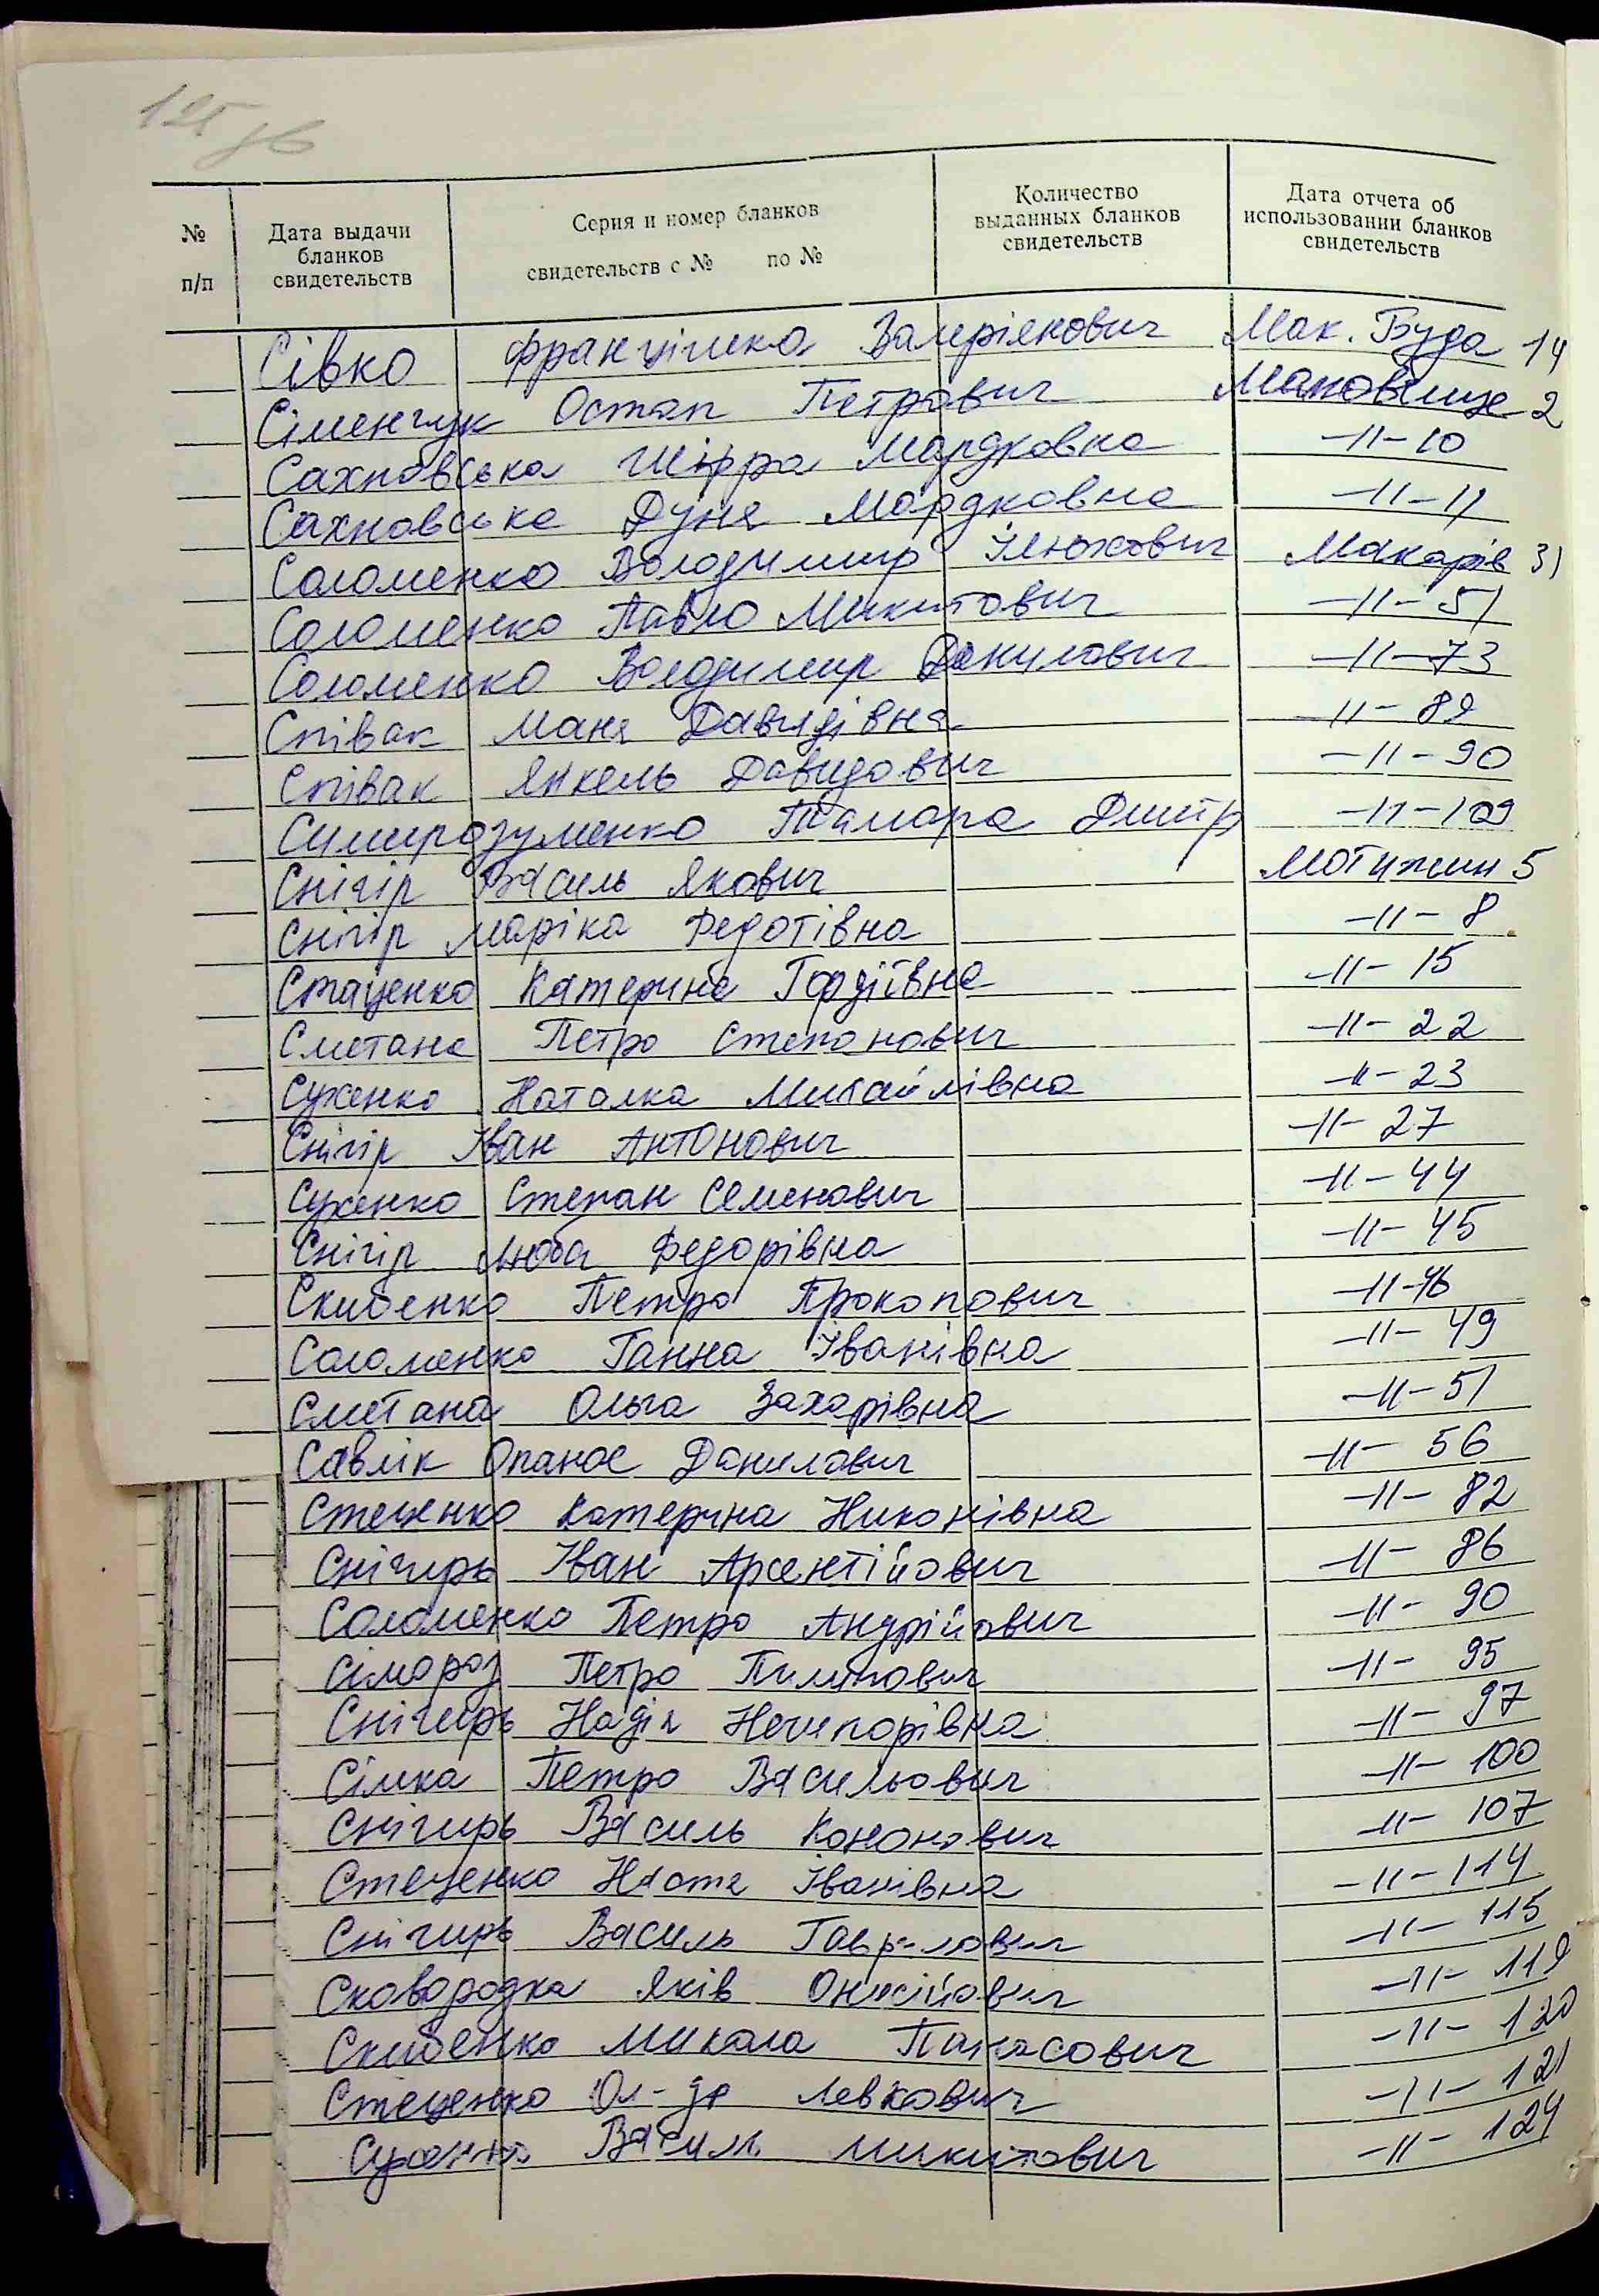 125 зв
№ п/п
Дата выдачи бланков свидетельств
Серия и номер бланков свидетельств с № по №
Количество выданных бланков свидетельств
Дата отчета об использовании бланков свидетельств
Сівко Францішка Валеріянович Мак. Буда 14
Сіменчук Остап Петрович Маковище 2
Сахновська Шіфра Мардковна -11- 10
Сахновська Дуня Мардковна -11- 11
Соломенко Володимир Ілюхович Макарів 31
Соломенко Павло Микитович -11- 51
Соломенко Володимир Данилович -11- 73
Співак Маня Давидівна -11- 89
Співак Янкель Давидович -11- 90
Симирозуменко Тамара Дмитр -11- 109
Снігір Василь Якович Мотижин 5
Снігір Маріка Федотівна -11- 8
Стаценко Катерина Гордіївна -11- 15
Сметана Петро Степанович -11- 22
Суженко Наталка Михайлівна -11- 23
Снігір Іван Антонович -11- 27
Суженко Степан Семенович -11- 44
Снігір Люба Федорівна -11- 45
Скибенко Петро Прокопович -11- 46
Соломенко Ганна Іванівна -11- 49
Сметана Ольга Захарівна -11- 51
Савлік Опанас Данилович -11- 56
Стеценко Катерина Никонівна -11- 82
Снігирь Іван Арсентійович -11- 86
Соломенко Петро Андрійович -11- 90
Сімороз Петро Пилипович -11- 95
Снігирь Надія Нечипорівна -11- 97
Сімка Петро Васильович -11- 100
Снігирь Василь Кононович -11- 107
Стеценко Настя Іванівна -11- 114
Снігирь Василь Гаврилович -11- 115
Сковородка Яків Онисійович -11- 119
Скибенко Микола Панасович -11- 120
Стеценко Ол-др Левкович -11- 121
Суженко Василь Микитович -11- 124